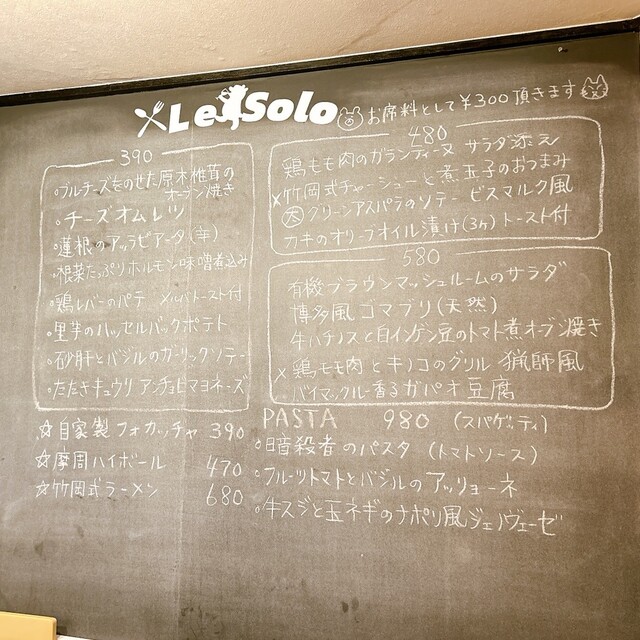 Le Solo
お席料として¥300頂きます
390
。ブルチーズをのせた原木椎茸の
オーブン焼き
。チーズオムレツ
。蓮根のアラビアータ(辛)
。根菜たっぷりホルモン味噌煮込み
。鶏レバーのパテ メルバトースト付
。里芋のハッセルバックポテト
。砂肝とバジルのガーリックソテー
。たたきキュウリ アンチョビマヨネーズ
☆自家製フォカッチャ 390
☆摩周ハイボール 470
☆竹岡式ラーメン 680
480
鶏もも肉のガランティーヌ サラダ添え
x竹岡式チャーシューと煮玉子のおつまみ
大グリーンアスパラのソテー ビスマルク風
カキのオリーブオイル漬け(3ヶ)トースト付
580
有機ブラウンマッシュルームのサラダ
博多風ゴマブリ(天然)
牛ハチノスと白インゲン豆のトマト煮オーブン焼き
x鶏モモ肉とキノコのグリル 猟師風
バイマックルー香るガパオ豆腐
PASTA 980 (スパゲッティ)
。暗殺者のパスタ (トマトソース)
。フルーツトマトとバジルのアッリョーネ
。牛スジと玉ネギのナポリ風ジェノヴェーゼ